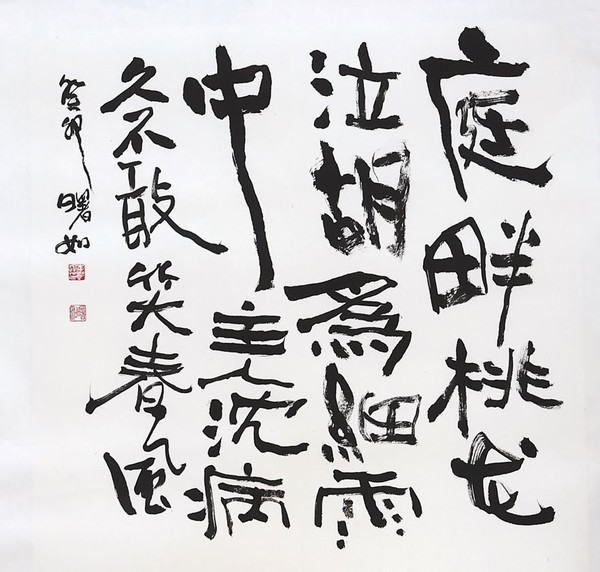 庭畔桃花
泣胡為細雨
中主人沈病
久不敢笑春風
癸卯曙如